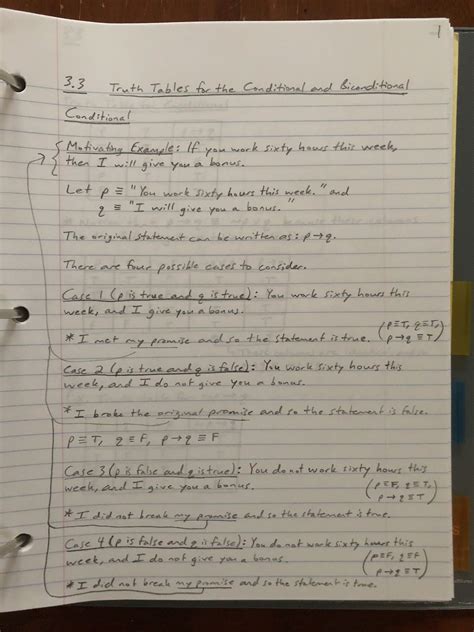 1
3.3 Truth Tables for the Conditional and Biconditional
Conditional
Motivating Example: If you work sixty hours this week,
then I will give you a bonus.
Let p ≡ "You work sixty hours this week." and
q ≡ "I will give you a bonus."
The original statement can be written as: p→q.
There are four possible cases to consider.
Case 1 (p is true and q is true): You work sixty hours this
week, and I give you a bonus.
* I met my promise and so the statement is true. (p≡T, q≡T,
p→q≡T)
Case 2 (p is true and q is false): You work sixty hours this
week, and I do not give you a bonus.
* I broke the original promise and so the statement is false.
p≡T, q≡F, p→q≡F
Case 3 (p is false and q is true): You do not work sixty hours this
week, and I give you a bonus. (p≡F, q≡T,
p→q≡T)
* I did not break my promise and so the statement is true.
Case 4 (p is false and q is false): You do not work sixty hours this
week, and I do not give you a bonus. (p≡F, q≡F
p→q≡T)
* I did not break my promise and so the statement is true.